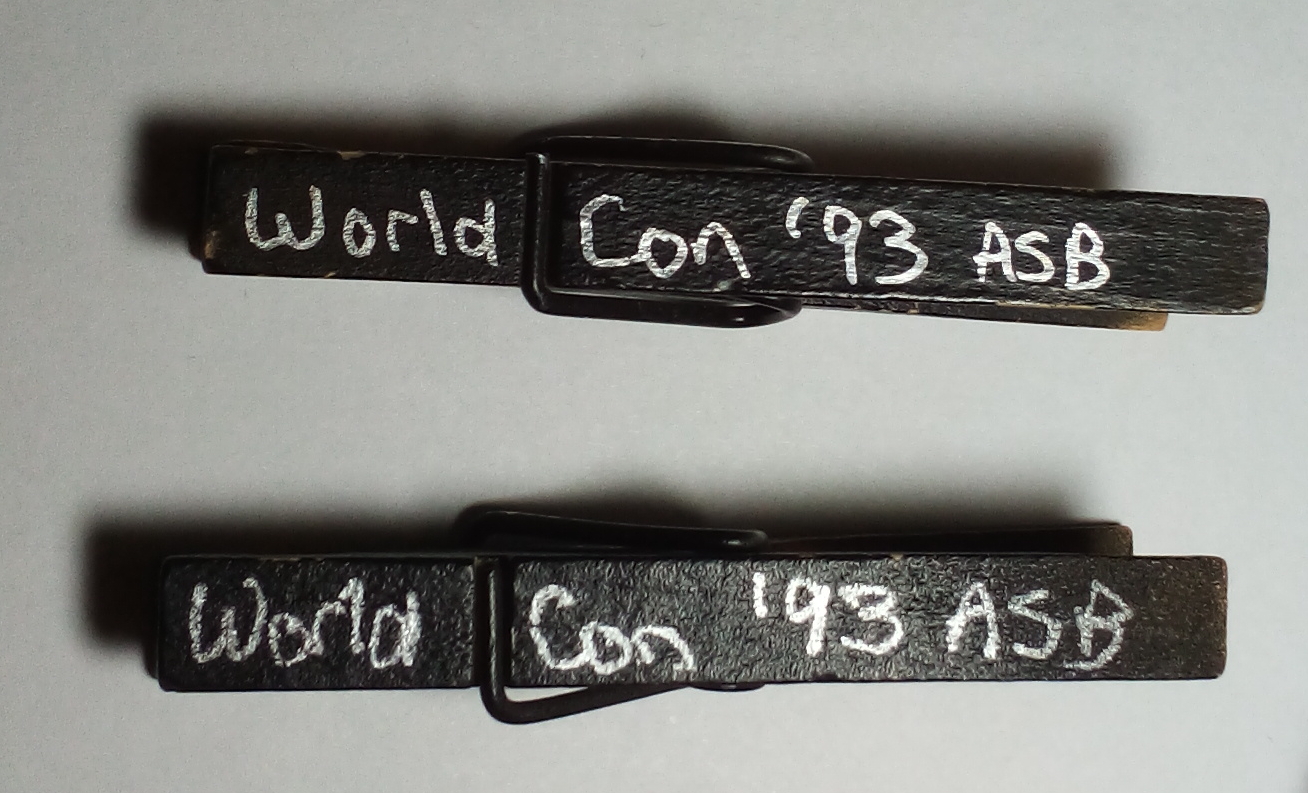 World Con '93 ASB
World Con '93 ASB